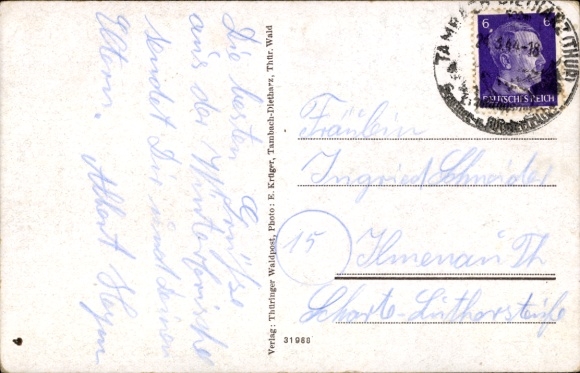 Die besten Grüße
aus der Winterfrische
sendet Dir und deinen
Eltern. Albert Heym
Verlag: Thüringer Waldpost, Photo: E. Krüger, Tambach-Dietharz, Thür. Wald
31988
TAMBACH-DIETHARZ (THÜR)
6 6
DEUTSCHES REICH
Fräulein
Ingried Schneider
15 Ilmenau Th